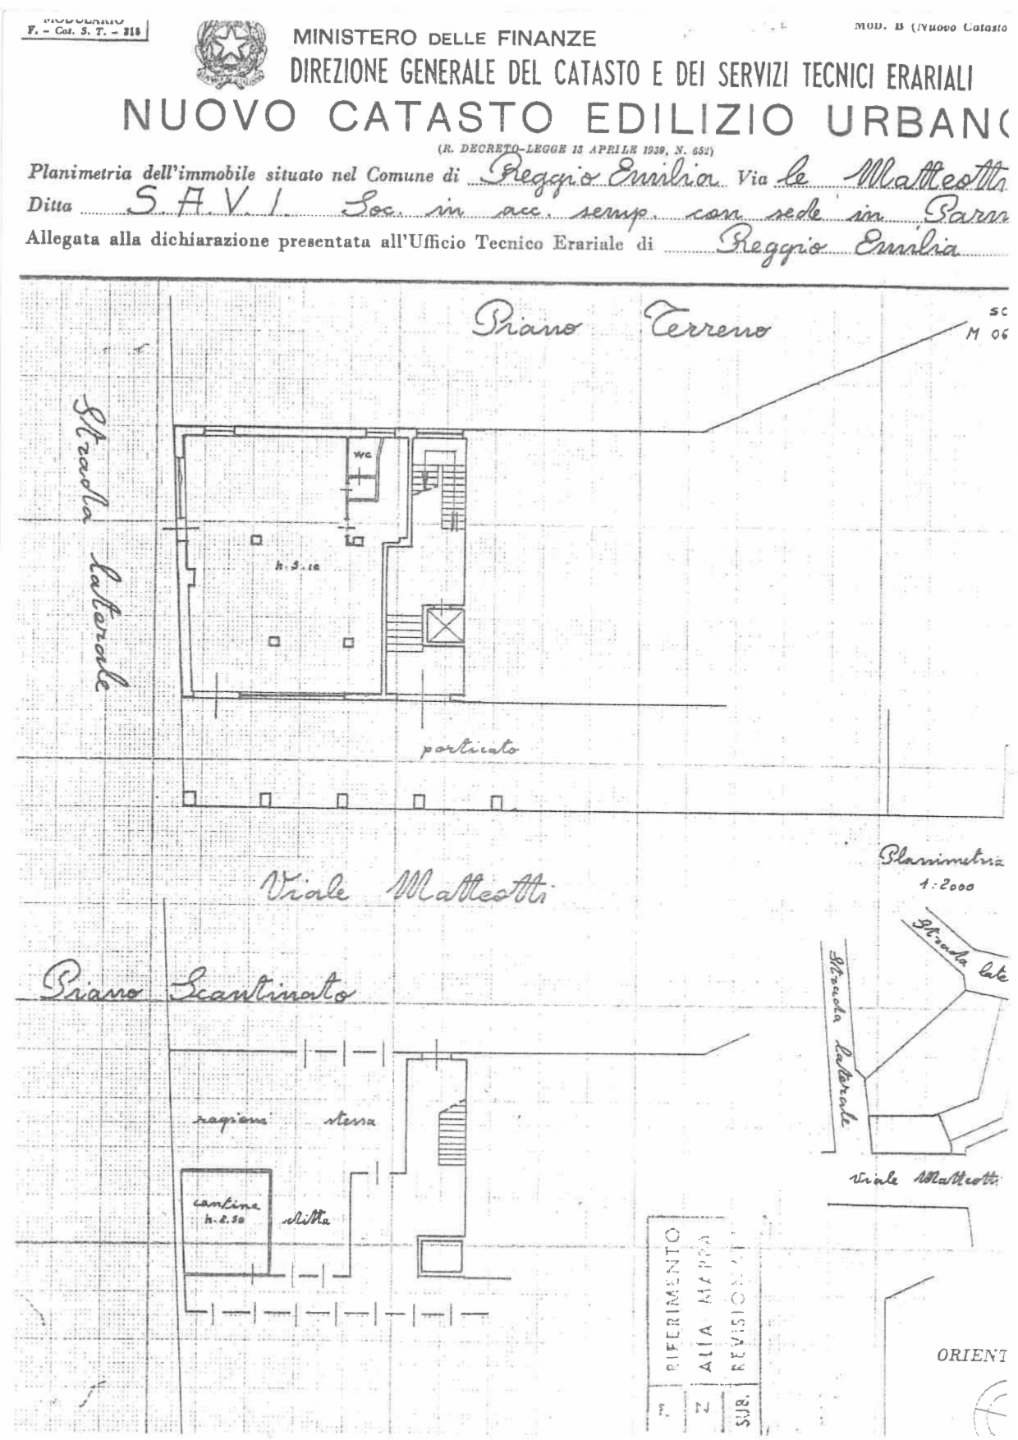 MODULARIO
F. - Cat. S. T. - 315
MOD. B (Nuovo Catasto
MINISTERO DELLE FINANZE
DIREZIONE GENERALE DEL CATASTO E DEI SERVIZI TECNICI ERARIALI
NUOVO CATASTO EDILIZIO URBANO
(R. DECRETO-LEGGE 13 APRILE 1939, N. 652)
Planimetria dell'immobile situato nel Comune di Reggio Emilia Via le Matteotti
Ditta S.A.V.I. Soc. in acc. semp. con sede in Parm
Allegata alla dichiarazione presentata all'Ufficio Tecnico Erariale di Reggio Emilia
Piano Terreno
SC
M 06
Strada laterale
wc
h. 3.10
porticato
Viale Matteotti
Planimetria
1:2000
Strada late
Strada laterale
Viale Matteotti
Piano Scantinato
ragione stessa
cantina
h. 2.50
ditta
RIFERIMENTO
ALLA MAPPA
F
N
SUB.
ORIENT